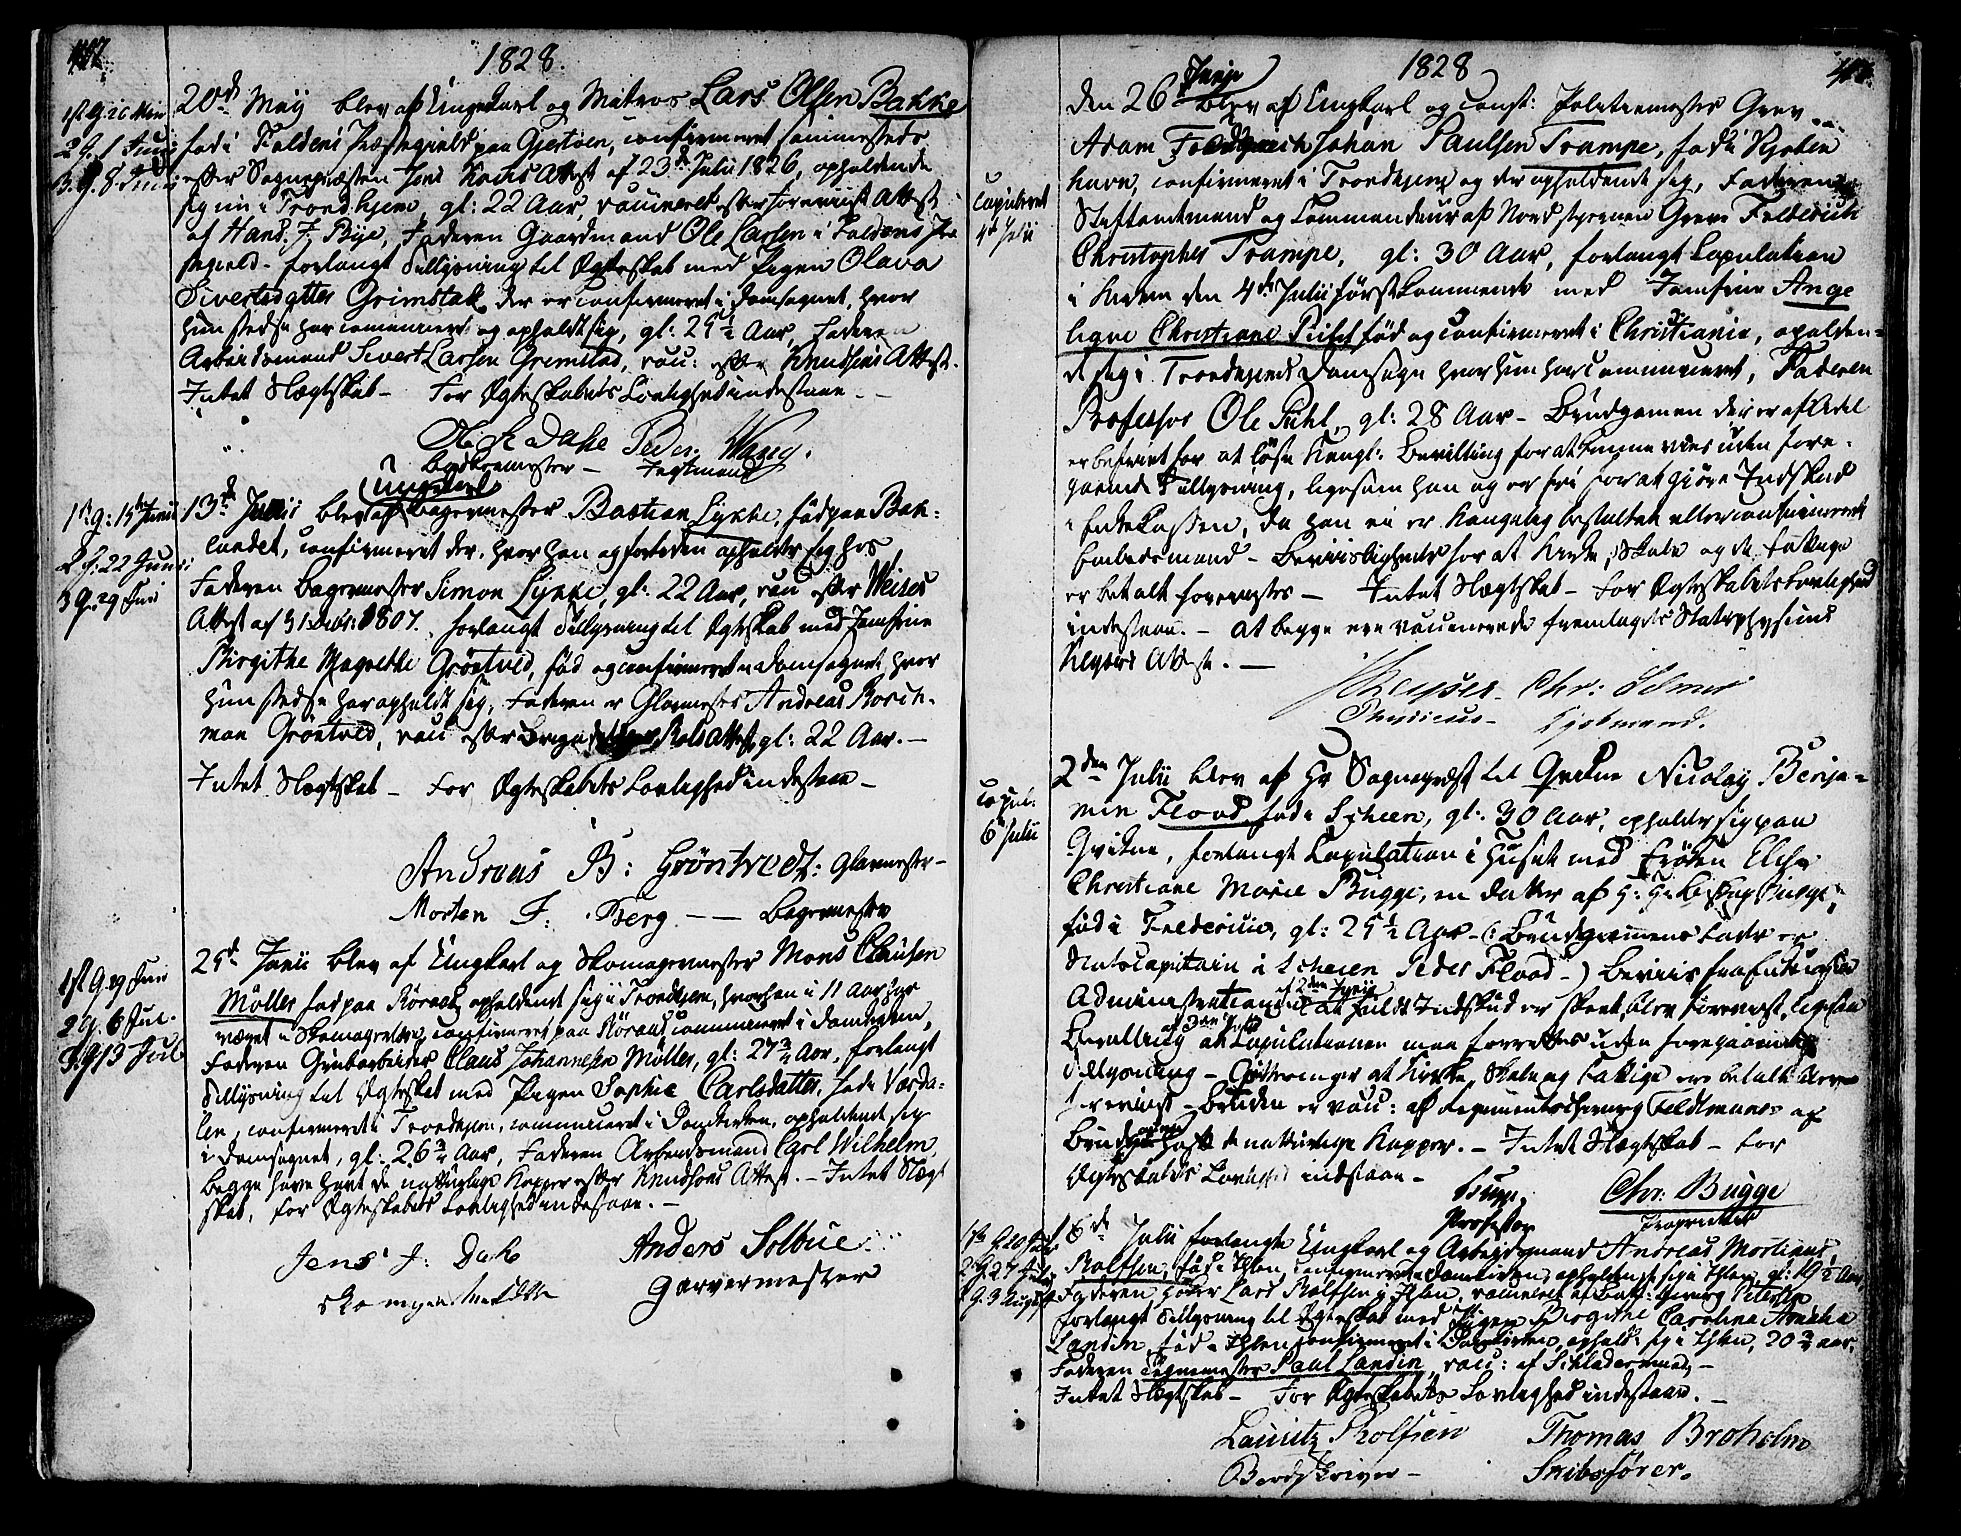 1828
1ste G. 26 Mai
2 G. 1 Junii
3. G. 8 Junii
20de May blev af Ungkarl og Matros Lars Olsen Bakke
fød i Foldens Præstegield paa Gjestøen, confirmeret sammesteds
efter Sognepræsten Jens Kochs Attest af 23de Julii 1826, opholdende
sig nu i Trondhjem, gl: 22 Aar, vaccineret efter foreviist Attest
af Hans. F. Bye, Faderen Gaardmand Ole Larsen i Foldens Præ-
stegield - forlangt Tillysning til Ægteskab med Pigen Olava
Sivertsdatter Grimstad, der er confirmeret i Domsognet, hvor
hun stedse har comuniceret og opholdt sig, gl: 25½ Aar, Faderen
Arbeidsmand Sivert Larsen Grimstad, vacc: efter Knudsens Attest.
Intet Slægtskab - For Ægteskabets Lovlighed indestaae. -
Peder Wang.
1ste G: 15 Junii
2 G: 22 Junii
3 G: 29 Juni
Ungkarl
13de Junii blev af Bagermester Bastian Lykke, fød paa Bak-
landet, confirmeret der, hvor han og fortiden opholder sig hos
Faderen Bagermester Simon Lykke, gl: 22 Aar, vacc efter Weises
Attest af 31 Decbr: 1807. forlangt Tillysning til Ægteskab med Jomfrue
Birgithe Magrethe Gröntved, fød og confirmeret i Domsognet, hvor
hun stedse har opholdt sig, Faderen er Glarmester Andreas Borch-
man Gröntved, vacc efter Attest, gl: 22 Aar. -
Intet Slægtskab - For Ægteskabets Lovlighed indestaae -
Andreas B: Gröntvedt: Glarmester -
Morten F. Berg - - Bagermester
1ste G. 29 Juni
2 G. 6 Jul.
3. G 13 Jul
25de Junii blev af Ungkarl og Skomagermester Mons Clausen
Möller fød paa Röraas, opholdende sig i Trondhjem, hvor han i 11 Aar har
været i Skomagerlære, confirmeret paa Röraas, comuniceret i Domkirken,
Faderen Grubarbeider Claus Johannesen Möller, gl: 27¾ Aar, forlangt
Tillysning til Ægteskab med Pigen Sophie Carlsdatter, fød i Værda-
len, confirmeret i Trondhjem, comuniceret i Domkirken, opholdende sig
i Domsognet, gl: 26¾ Aar, Faderen Arbeidsmand Carl Wilhelm,
begge have havt de naturlige Kopper efter Knudsons Attest. - Intet Slægt
skab, For Ægteskabets Lovlighed indestaae. -
Jens J: Dahl
Anders Solbue
Garvermester
1828
Copuleret
4de Julii
Junii
Den 26de blev af Ungkarl og const: Politiemester Grev
Adam Fredrerich Johan Paulsen Trampe, fød i Kjöben
havn, confirmeret i Trondhjem og der opholdende sig, Faderen
Stiftamtmand og Commandeur af Nordstjernen Greve Frederich
Christopher Trampe, gl: 30 Aar, forlangt Copulation
i Kirken den 4de Julii förstkommende med Jomfrue Ange
ligne Christiane Pihl fød og confirmeret i Christiania, opholden-
de sig i Trondhjems Domsogn hvor hun har Communiceret, Faderen
Professor Ole Pihl, gl: 28 Aar - Brudgomen der er af Adel
er befriet for at löse Kongl: Bevilling for at kunne vies uden fore-
gaaende Tillysning, ligesom han og er fri for at gjöre Indskud
i Enke Cassen, da han ei er Kongelig bestaltet eller confirmeret
Embedsmand - Beviisligheder for at Kirke, Skole og de Fattige
er betalt forevistes - Intet Slægtskab - For Ægteskabets Lovlighed
indestaae. - At begge ere vaccinerede fremlagdes Statsphysicus
Keysers Attest. -
Keyser - Chr:
Physicus -
Copul.
6 Julii
2den Julii blev af Hr Sognepræst til Qvikne Nicolay Benja-
min Flood, fød i Scheen, gl: 30 Aar, opholder sig paa
Qvikne, forlangt Copulation i Huset med Fröken Elise
Christiane Marie Bugge, en Datter af H: Hr. Biskop Bugge,
fød i Fredericia, gl: 25½ Aar - (: Brudgomens Fader er
Skibscapitain i Scheen Peder Flood -) Beviis fra Enkecassens
Administrationen af 2den Junii at fuldt Indskud er skeet, blev foreviist, ligesom
Bevilling af 3de Julii at Copulationen maa forrettes uden foregaaende
Tillysning - Qvitteringer at Kirke, Skole og Fattige ere betalt blev
foreviist - Bruden er vacc: af Regimentschirurg Feldtmann og
Brudgomen havt de naturlige Kopper. - Intet Slægtskab - For
Ægteskabets Lovlighed indestaae -
Bugge Chr: Bugge
Professor Proprietair
1ste G. 20 Julii
2 G. 27 Julii
3 G. 3 August
6de Julii forlangte Ungkarl og Arbeidsmand Andreas Mortinus
Rolfsen, fød i Ihlen, confirmeret i Domkirken, opholdende sig i Ihlen, gl: 19½ Aar,
Faderen Höker Lars Rolfsen i Ihlen, vaccineret af Bat: Chirurg Petersen
forlangt Tillysning til Ægteskab med Pigen Birgithe Carolina Amalia
Landin, fød i Ihlen, confirmeret i Domkirken, opholdt sig i Ihlen, 20¾ aar,
Faderen Paul Landin, vacc: af Schlædermund, -
Intet Slægtskab - For Ægteskabets Lovlighed indestaae. -
Lauritz Rolfsen Thomas Broholm
Bordskriver - Skibsförer.